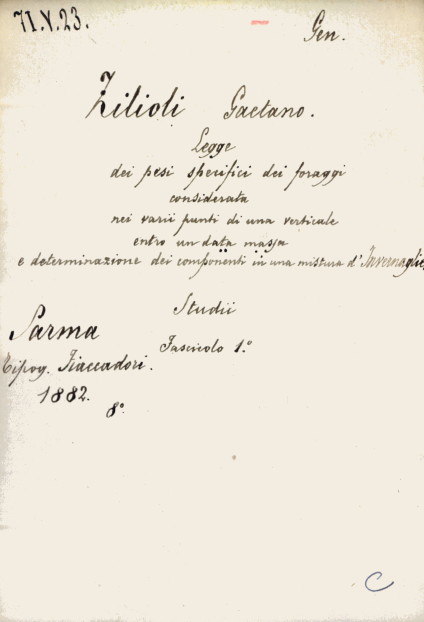 71.V.23.
Gen.
Zilioli Gaetano.
Legge
dei pesi specifici dei foraggi
considerata
nei varii punti di una verticale
entro un data massa
e determinazione dei componenti in una mistura d'Invernaglie
Studii
Parma
Fascicolo 1.°
Tipog. Fiaccadori.
1882.
8°.
C